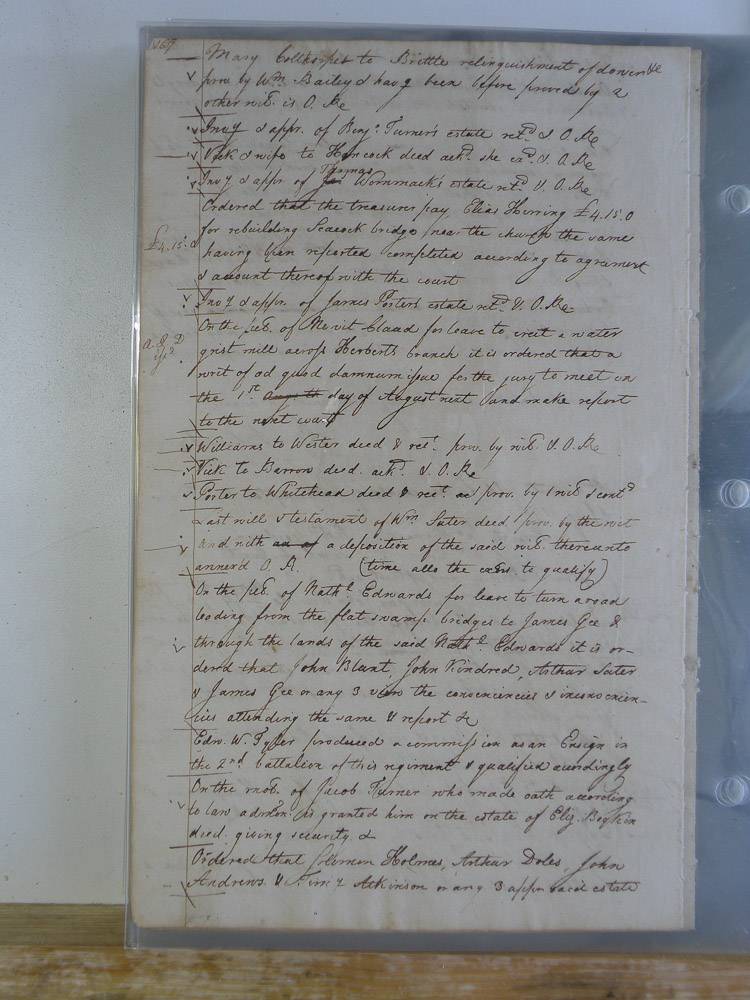 Mary Colthorpes to Brittle relinquishment of dower &c
prov. by Wm. Bailey & havg been before proved by a
other wit. is O. Re
Invy & appr. of Benj. Turner's estate retd. & O. Re
Vick & wife to Hancock deed ackd. she exd. & O. Re
Thomas
Invy & appr. of Wommack's estate retd. & O. Re
Ordered that the treasurer pay Elias Herring £4.15.0
for rebuilding Seacock bridge near the church the same
£4.15.0
having been reported completed according to agreement
& account thereof with the court
Invy & appr. of James Porter's estate retd. & O. Re
On the pet. of Mevit Claud for leave to erect a water
grist mill across Herbert's branch it is ordered that a
writ of ad quod damnum issue for the jury to meet on
the 1st day of August next and make report
to the next court
Williams to Wester deed & rect. prov. by wit. & O. Re
Vick to Barrow deed ackd. & O. Re
Porter to Whitehead deed & rect. prov. by 1 wit & contd
Last will & testament of Wm. Suter decd prov. by the wit
and with a deposition of the said wit. thereunto
annex'd O. R. (time allo the exors to qualify)
On the pet. of Nathl. Edwards for leave to turn a road
leading from the flat swamp bridges to James Gee &
through the lands of the said Nathl. Edwards it is or-
dered that John Blunt, John Kindred, Arthur Suter
& James Gee or any 3 view the conveniencies & inconvenien-
cies attending the same & report &
Edw. W. Tyler produced a commission as an Ensign in
the 2nd battalion of this regiment & qualified accordingly
On the mot. of Jacob Turner who made oath according
to law admon. is granted him on the estate of Eliz. Boykin
decd. giving security &
Ordered that Solomon Holmes, Arthur Doles, John
Andrews & Atkinson or any 3 appr. said estate